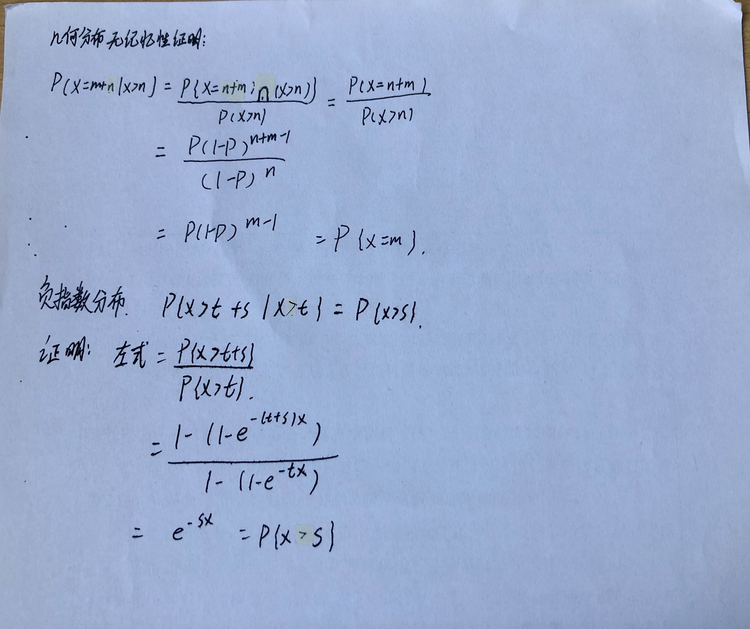 几何分布无记忆性证明:
P{X=m+n|X>n} = P{X=n+m ∩ (X>n)} / P(X>n) = P(X=n+m) / P(X>n)
= P(1-P)^{n+m-1} / (1-P)^n
= P(1-P)^{m-1} = P{X=m}.
负指数分布. P{X>t+s|X>t} = P{X>s}.
证明: 左式 = P{X>t+s} / P{X>t}.
= 1-(1-e^{-(t+s)x}) / 1-(1-e^{-tx})
= e^{-sx} = P{X>s}